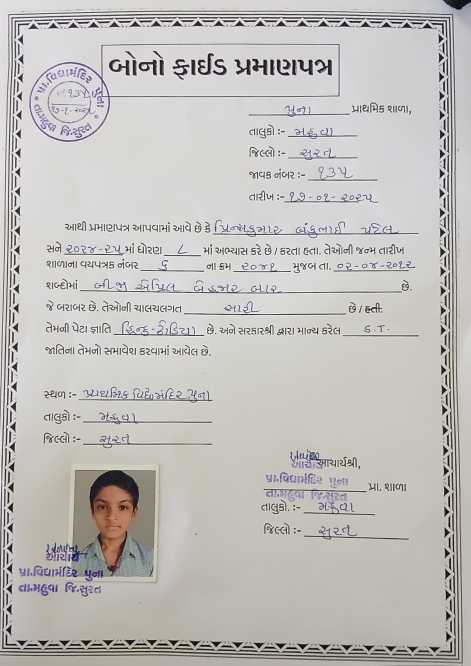 બોનો ફાઈડ પ્રમાણપત્ર
પ્રા.વિદ્યામંદિર પુના
૧૩૫
તા.મહુવા જિ.સુરત
પુના પ્રાથમિક શાળા,
તાલુકો :- મહુવા
જિલ્લો :- સુરત
જાવક નંબર :- ૧૩૫
તારીખ :- ૧૭-૦૧-૨૦૨૫
આથી પ્રમાણપત્ર આપવામાં આવે છે કે પ્રિન્સકુમાર બંકુભાઈ પટેલ
સને ૨૦૨૪-૨૫ માં ધોરણ ૮ માં અભ્યાસ કરે છે / કરતા હતા. તેઓની જન્મ તારીખ
શાળાના વયપત્રક નંબર ૬ ના ક્રમ ૨૦૪૧ મુજબ તા. ૦૨-૦૪-૨૦૧૨
શબ્દોમાં બીજી એપ્રિલ બે હજાર બાર છે.
જે બરાબર છે. તેઓની ચાલચલગત સારી છે / હતી.
તેમની પેટા જ્ઞાતિ હિન્દુ-ઢોડિયા છે. અને સરકારશ્રી દ્વારા માન્ય કરેલ S.T.
જાતિના તેમનો સમાવેશ કરવામાં આવેલ છે.
સ્થળ :- પ્રાથમિક વિદ્યામંદિર પુના
તાલુકો :- મહુવા
જિલ્લો :- સુરત
આચાર્ય આચાર્યશ્રી,
પ્રા.વિદ્યામંદિર પુના પ્રા. શાળા
તા.મહુવા જિ.સુરત
તાલુકો. :- મહુવા
જિલ્લો :- સુરત
આચાર્ય
પ્રા.વિદ્યામંદિર પુના
તા.મહુવા જિ.સુરત